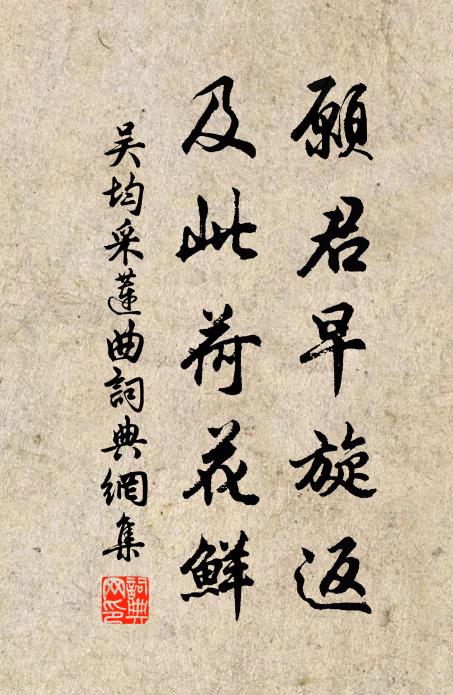 願君早旋返
及此荷花鮮
吴均采蓮曲詞典網集
詞典
网印